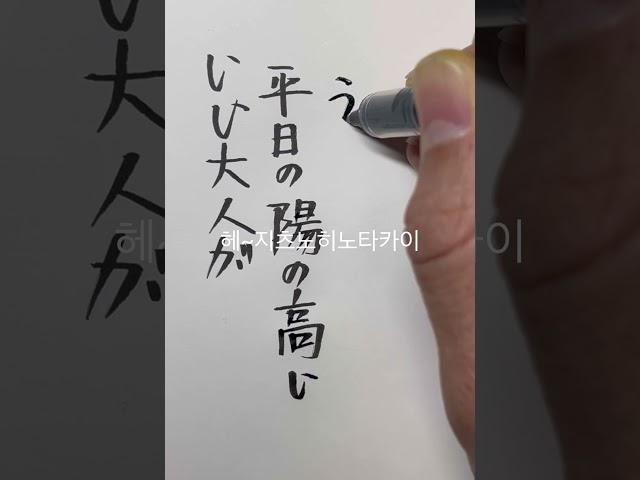 いい大人が
平日の陽の高い
う
헤~지츠노히노타카이